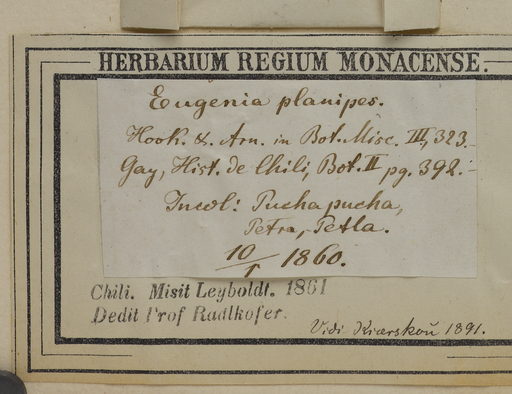 HERBARIUM REGIUM MONACENSE.
Eugenia planipes.
Hook. & Arn. in Bot. Misc. III, 323.
Gay, Hist. de Chili, Bot. II pg. 392.
Incol: Puchapucha,
Petra, Petla.
10/I 1860.
Chili. Misit Leyboldt. 1861
Dedit Prof Radlkofer.
Vidi Kiærskou 1891.